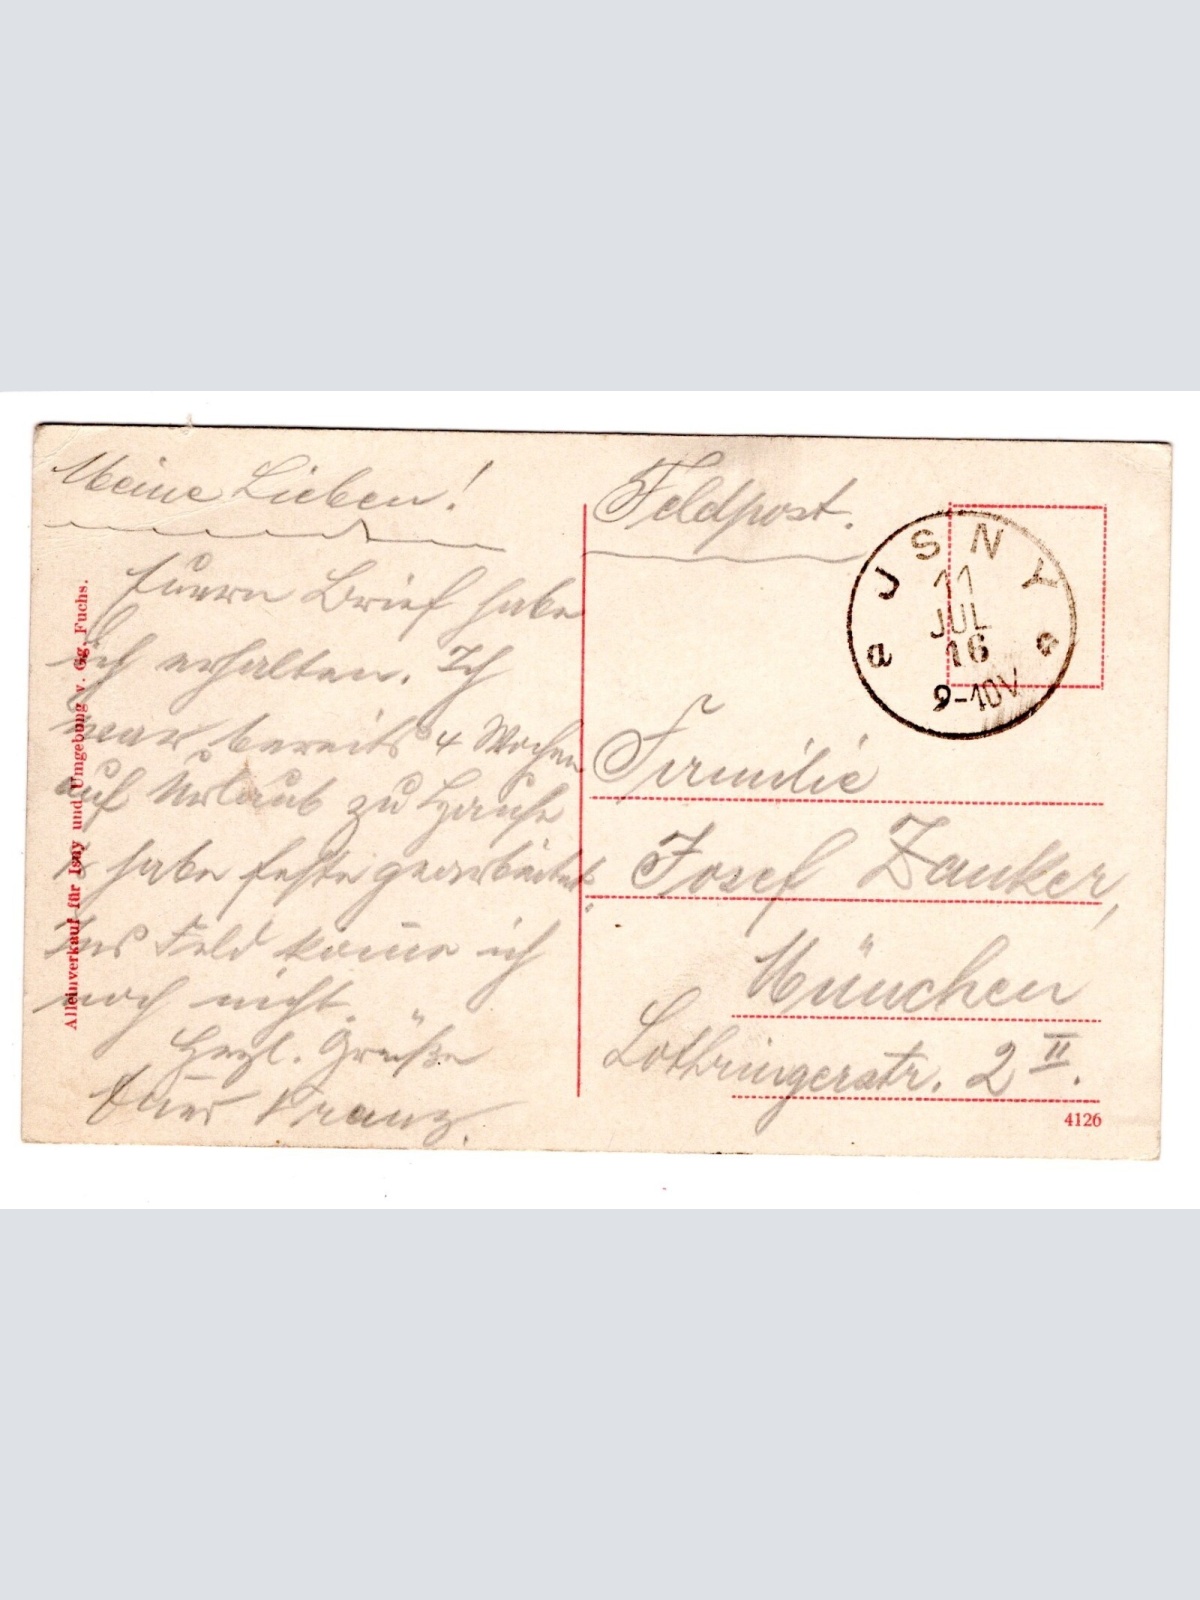 Meine Lieben!
Euern Brief habe
ich erhalten. Ich
war bereits 4 Wochen
auf Urlaub zu Hause
& habe feste gearbeitet.
Ins Feld komme ich
noch nicht.
Herzl. Grüße
Euer Franz.
Alleinverkauf für Isny und Umgebung v. Gg. Fuchs.
Feldpost.
JSNY
11
JUL
16
9-10V
a
Familie
Josef Zanker,
München
Lothringerstr. 2 II.
4126